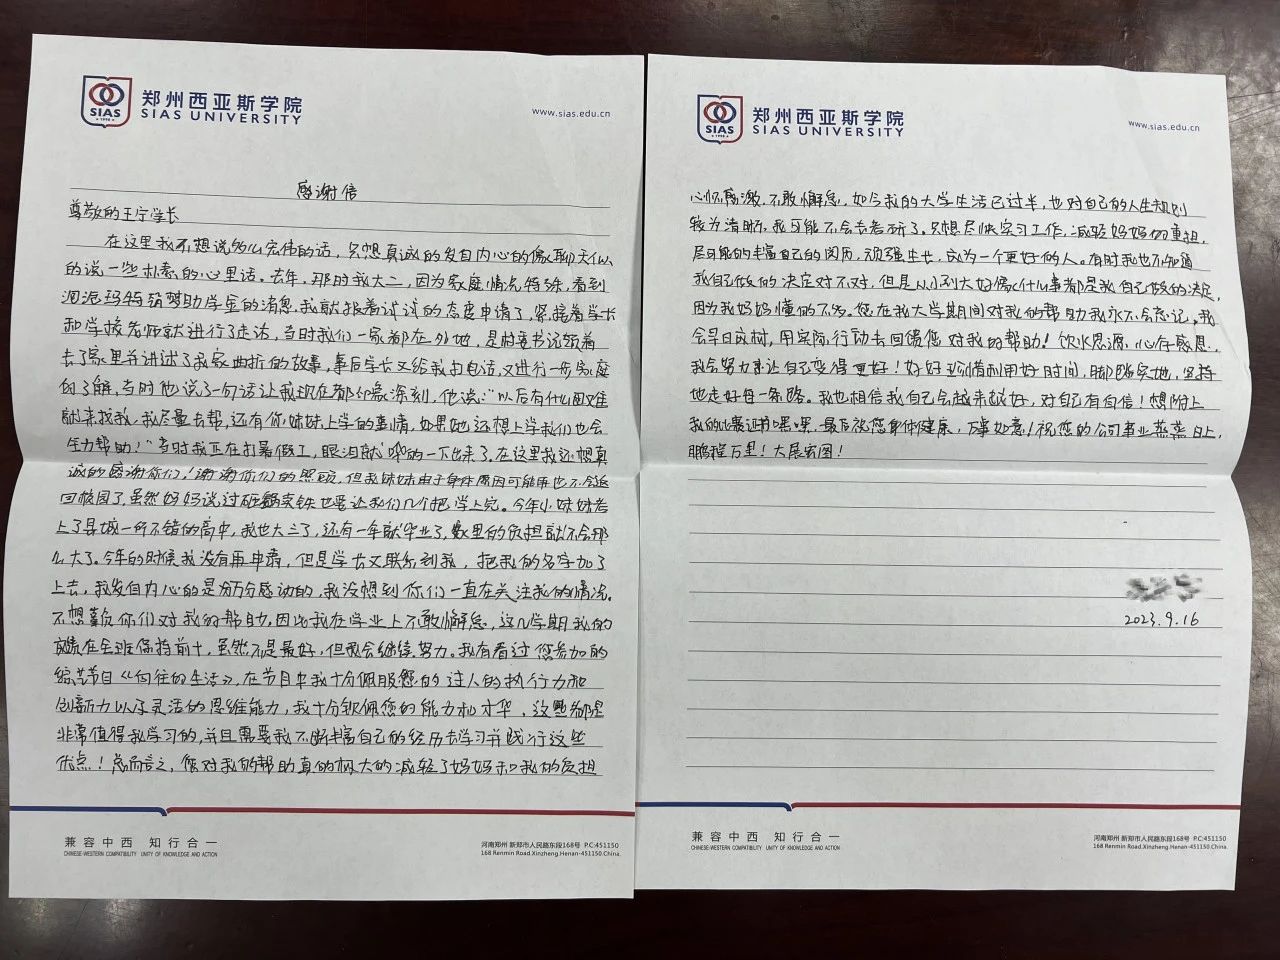 郑州西亚斯学院
SIAS UNIVERSITY
SIAS
1998
www.sias.edu.cn
感谢信
尊敬的王宁学长
在这里我不想说多么宏伟的话，只想真诚的发自内心的像聊天似
的说一些朴素的心里话。去年，那时我大二，因为家庭情况特殊，看到
泡泡玛特筑梦助学金的消息，我就报着试试的态度申请了，紧接着学长
和学校老师就进行了走访，当时我们一家都在外地，是村委书记领着
去了家里并讲述了我家曲折的故事，事后学长又给我打电话，又进行一步家庭
的了解，当时他说了一句话让我现在都印象深刻，他说：“以后有什么困难
就来找我，我尽量去帮，还有你妹妹上学的事情，如果她还想上学我们也会
全力帮助！”当时我正在打暑假工，眼泪就 的一下出来了。在这里我还想真
诚的感谢你们！谢谢你们的照顾，但我妹妹由于身体原因可能再也不会返
回校园了，虽然妈妈说过砸锅卖铁也要让我们几个把学上完。今年小妹妹考
上了县城一所不错的高中，我也大三了，还有一年就毕业了，家里的负担就不会那
么大了。今年的时候我没有再申请，但是学长又联系到我，把我的名字加了
上去，我发自内心的是万分感动的，我没想到你们一直在关注我的情况。
不想辜负你们对我的帮助，因此我在学业上不敢懈怠，这几学期我的
成绩在全班保持前十，虽然不是最好，但我会继续努力。我有看过您参加的
综艺节目《向往的生活》，在节目中我十分佩服您的过人的执行力和
创新力以及灵活的思维能力，我十分钦佩您的能力和才华，这些都是
非常值得我学习的，并且需要我不断丰富自己的经历去学习并践行这些
优点！总而言之，您对我的帮助真的极大的减轻了妈妈和我的负担
兼容中西 知行合一
CHINESE-WESTERN COMPATIBILITY UNITY OF KNOWLEDGE AND ACTION
河南郑州 新郑市人民路东段168号 P.C:451150
168 Renmin Road.Xinzheng.Henan-451150.China.
郑州西亚斯学院
SIAS UNIVERSITY
SIAS
1998
www.sias.edu.cn
心怀感激，不敢懈怠，如今我的大学生活已过半，也对自己的人生规划
较为清晰，我可能不会去考研了，只想尽快实习工作，减轻妈妈的重担，
尽可能的丰富自己的阅历，顽强生长，成为一个更好的人。有时我也不知道
我自己做的决定对不对，但是从小到大好像什么事都是我自己做的决定，
因为我妈妈懂的不多。您在我大学期间对我的帮助我永不会忘记，我
会早日成材，用实际行动去回馈您对我的帮助！饮水思源，心存感恩，
我会努力来让自己变得更好！好好 利用好时间，脚踏实地，坚持
地走好每一条路。我也相信我自己会越来越好，对自己有自信！想附上
我的比赛证书嘿嘿，最后祝您身体健康，万事如意！祝您的公司事业蒸蒸日上，
鹏程万里！大展宏图！
2023.9.16
兼容中西 知行合一
CHINESE-WESTERN COMPATIBILITY UNITY OF KNOWLEDGE AND ACTION
河南郑州 新郑市人民路东段168号 P.C:451150
168 Renmin Road.Xinzheng.Henan-451150.China.